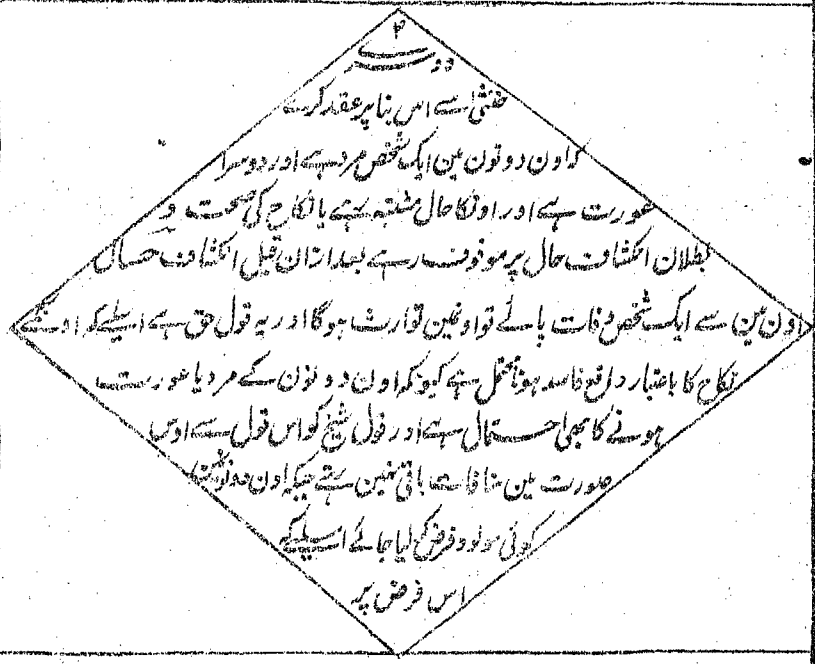 ۲
دوسرے
خنثی اسے اس بنا پر عقد کرے
کہ اون دونون مین ایک شخص مرد ہے اور دوسرا
عورت ہے اور اونکا حال مشتبہ ہے یا نکاح کی صحت و
بطلان انکشاف حال پر موقوف رہے بعد ازان قبل انکشاف حال
اون مین سے ایک شخص وفات پائے تو اونمین توارث ہوگا اور یہ قول حق ہے اسلیے کہ اونکے
نکاح کا باعتبار واقع فاسد ہونا محتمل ہے کیونکہ اون دونون کے مرد یا عورت
ہونے کا بھی احتمال ہے اور قول شیخ کو اس قول سے اوس
صورت مین منافات باقی نہین رہتے جبکہ اون دونونسے
کوئی مولود فرض کر لیا جائے اسلیے کہ
اس فرض پر